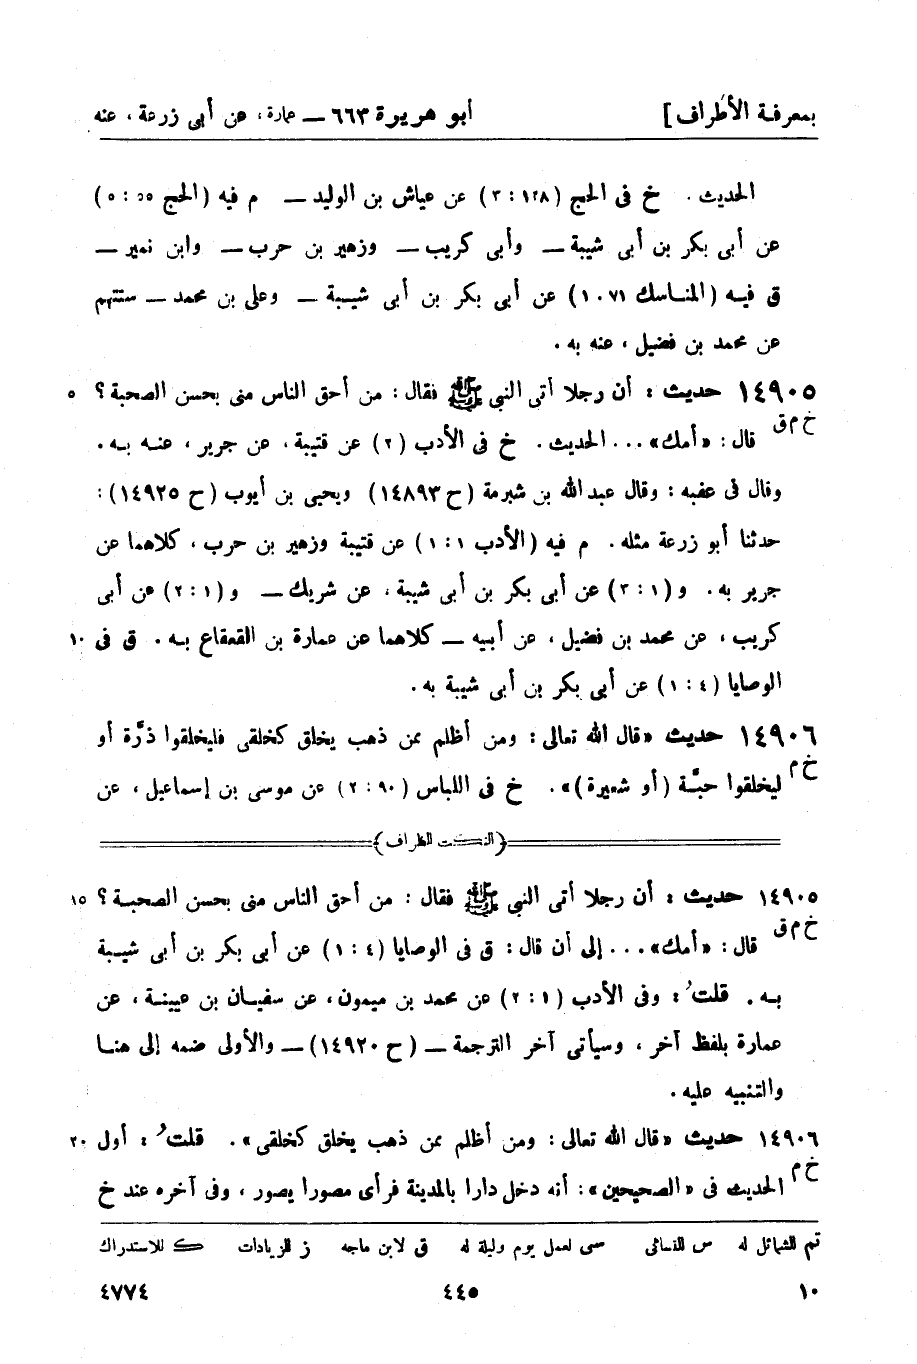 بمعرفة الأطراف] أبو هريرة ٦٦٣ — عمارة، عن أبى زرعة، عنه
الحديث. خ فى الحج (١٢٨ : ٣) عن عياش بن الوليد — م فيه (الحج ٥٥ : ٥)
عن أبى بكر بن أبى شيبة — وأبى كريب — وزهير بن حرب — وابن نمير —
ق فيه (المناسك ٧١ ١٠) عن أبى بكر بن أبى شيبة — وعلى بن محمد — ستتهم
عن محمد بن فضيل، عنه به.
١٤٩٠٥ حديث : أن رجلا أتى النبى ﷺ فقال : من أحق الناس منى بحسن الصحبة؟ ٥
خ م ق قال : «أمك» ... الحديث. خ فى الأدب (٢) عن قتيبة، عن جرير، عنه به.
وقال فى عقبه : وقال عبد الله بن شبرمة (ح ١٤٨٩٣) ويحيى بن أيوب (ح ١٤٩٢٥) :
حدثنا أبو زرعة مثله. م فيه (الأدب ١ : ١) عن قتيبة وزهير بن حرب، كلاهما عن
جرير به. و (١ : ٣) عن أبى بكر بن أبى شيبة، عن شريك — و (١ : ٢) عن أبى
كريب، عن محمد بن فضيل، عن أبيه — كلاهما عن عمارة بن القعقاع به. ق فى ١٠
الوصايا (٤ : ١) عن أبى بكر بن أبى شيبة به.
١٤٩٠٦ حديث «قال الله تعالى : ومن أظلم ممن ذهب يخلق كخلقى فليخلقوا ذرَّة أو
خ م ليخلقوا حبَّة (أو شعيرة)». خ فى اللباس (٩٠ : ٢) عن موسى بن إسماعيل، عن
(النكت الظراف)
١٤٩٠٥ حديث : أن رجلا أتى النبى ﷺ فقال : من أحق الناس منى بحسن الصحبة؟ ١٥
خ م ق قال : «أمك» ... إلى أن قال : ق فى الوصايا (٤ : ١) عن أبى بكر بن أبى شيبة
به. قلتُ : وفى الأدب (١ : ٢) عن محمد بن ميمون، عن سفيان بن عيينة، عن
عمارة بلفظ آخر، وسيأتى آخر الترجمة — (ح ١٤٩٢٠) — والأولى ضمه إلى هنا
والتنبيه عليه.
١٤٩٠٦ حديث «قال الله تعالى : ومن أظلم ممن ذهب يخلق كخلقى». قلتُ : أول ٢٠
خ م الحديث فى «الصحيحين» : أنه دخل دارا بالمدينة فرأى مصورا يصور، وفى آخره عند خ
تم للشمائل له س للنسائى سى لعمل يوم وليلة له ق لابن ماجه ز للزيادات ك للاستدراك
١٠ ٤٤٥ ٤٧٧٤